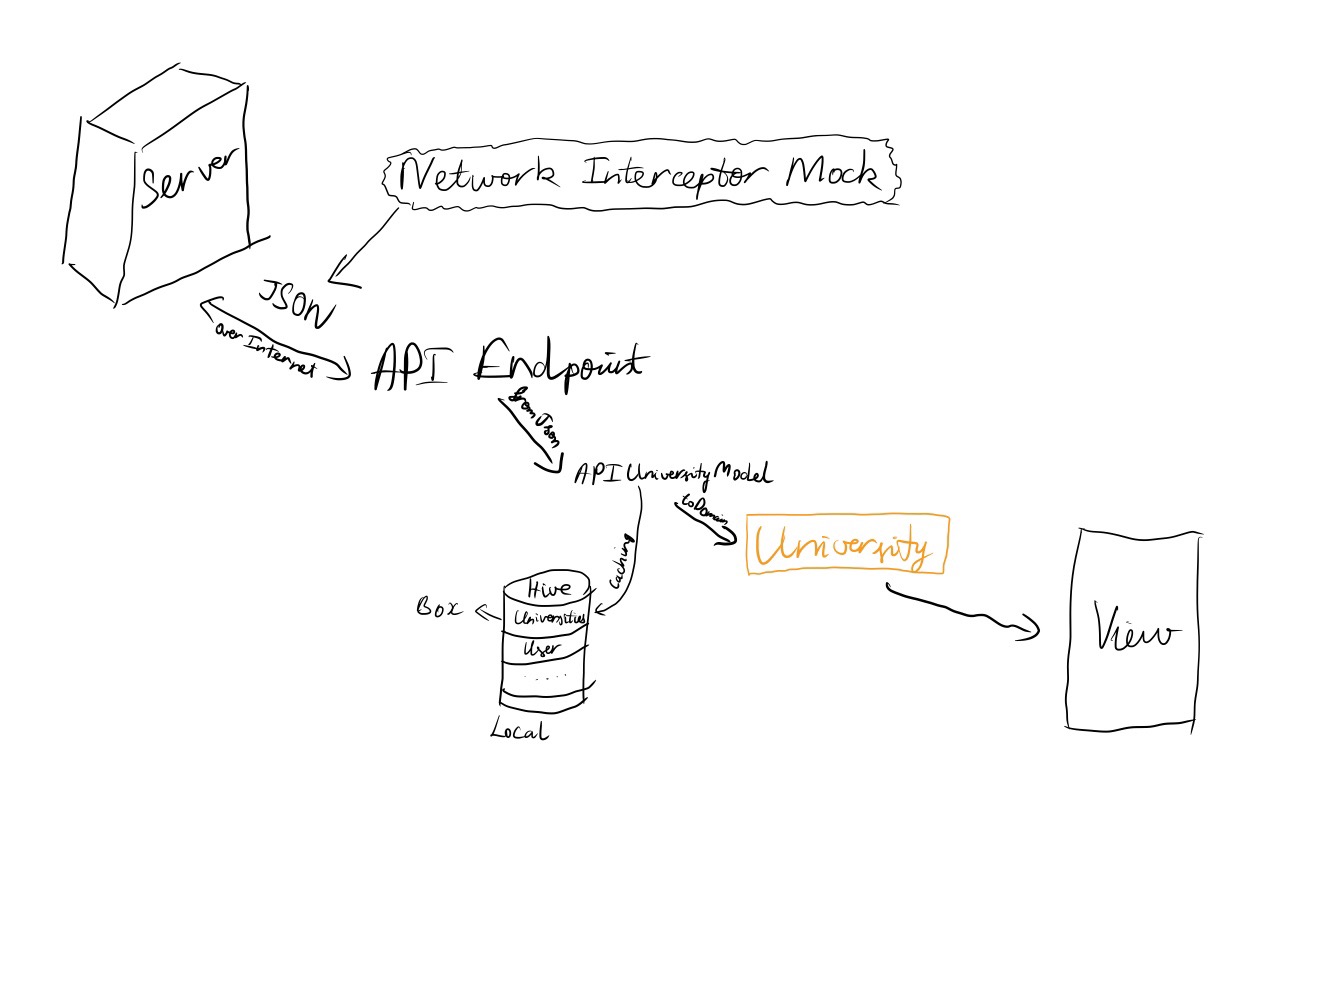 Server
Network Interceptor Mock
JSON
over Internet
API Endpoint
fromJson
API University Model
toDomain
University
Caching
Hive
Box
Universities
User
.....
Local
View